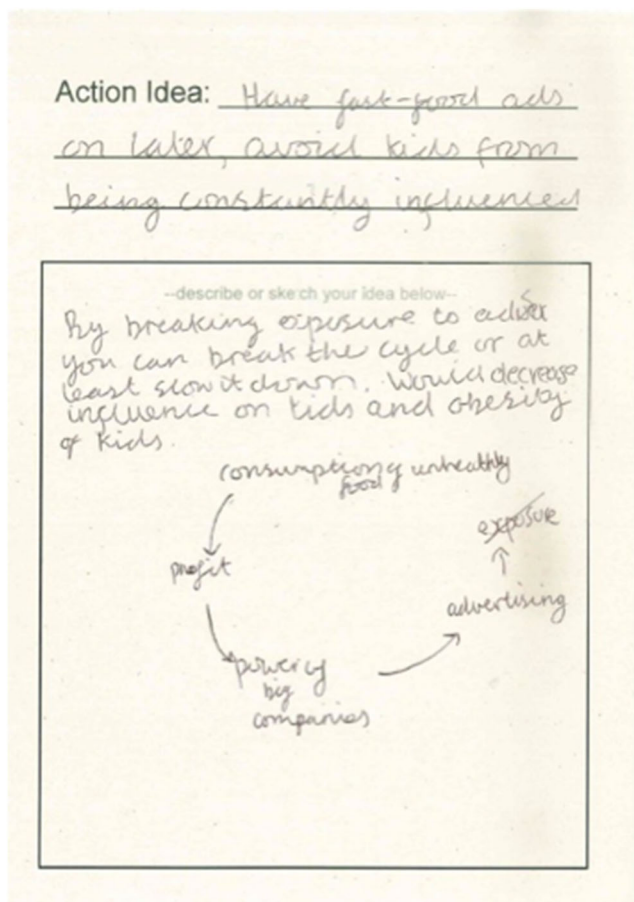 Action Idea: Have fast-food ads
on later, avoid kids from
being constantly influenced
--describe or sketch your idea below--
By breaking exposure to adver
you can break the cycle or at
least slow it down. Would decrease
influence on kids and obesity
of kids.
consumption of unhealthly
food
exposure
profit
advertising
power of
big
companies